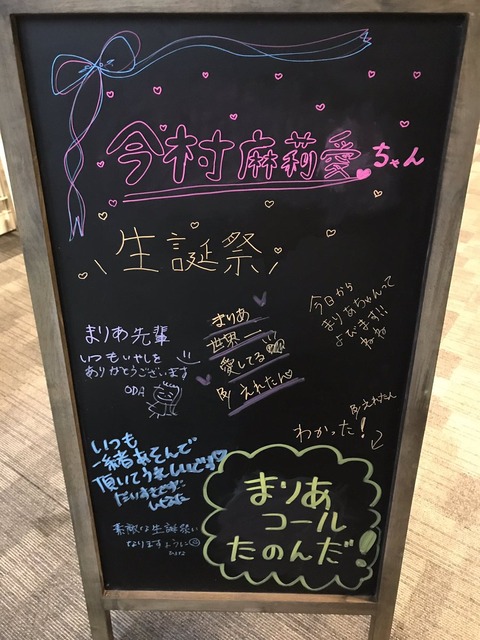 今村麻莉愛ちゃん
\生誕祭/
今日から
まりあちゃんって
よびます!!!
まりあ
世界一
愛してる
えれたん
まりあ先輩
いつもいやしを
ありがとうございます
ODA
えれたん
わかった!
いつも
一緒あそんで
頂いてうれしいです
まりあ
コール
たのんだ!
素敵な生誕祭に
なりますように